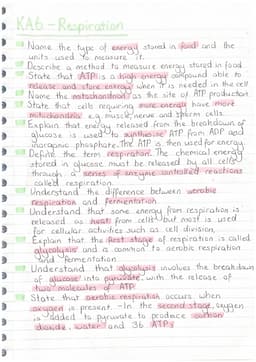 KA6 - Respiration
Name the type of energy stored in food and the
units used to measure it.
Describe a method to measure energy stored in food
State that ATP is a high energy compound able to
release and store energy when it is needed in the cell
Name the mitochondria as the site of ATP production
State that cells requiring more energy have more
mitochondria e.g. muscle, nerve and sperm cells.
Explain that energy released from the breakdown of
glucose is used to synthesise ATP from ADP and
inorganic phosphate. The ATP is then used for energy
Define the term respiration. The chemical energy
stored in glucose must be released by all cells
through a series of enzyme controlled reactions
called respiration.
Understand the difference between aerobic
respiration and fermentation
Understand that some energy from respiration is
released as heat from cells but most is used
for cellular activities such as cell division,
Explain that the first stage of respiration is called
glycolysis and is common to aerobic respiration
and fermentation
Understand that glycolysis involves the breakdown
of glucose into pyruvate, with the release of
two molecules of ATP
State that aerobic respiration occurs when
oxygen is present - In the second stage, oxygen
is added to pyruvate to produce carbon
dioxide, water and 36 ATPs